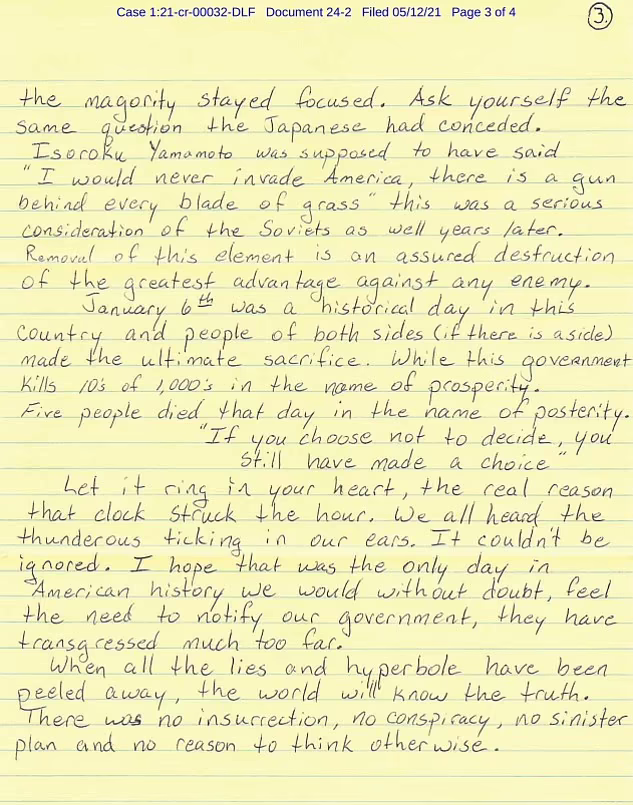 Case 1:21-cr-00032-DLF Document 24-2 Filed 05/12/21 Page 3 of 4
3.
the magority stayed focused. Ask yourself the
same question the Japanese had conceded.
Isoroku Yamamoto was supposed to have said
"I would never invade America, there is a gun
behind every blade of grass" this was a serious
consideration of the Soviets as well years later.
Removal of this element is an assured destruction
of the greatest advantage against any enemy.
January 6th was a historical day in this
Country and people of both sides (if there is a side)
made the ultimate sacrifice. While this government
kills 10's of 1,000's in the name of prosperity.
Five people died that day in the name of posterity.
"If you choose not to decide, you
still have made a choice"
Let it ring in your heart, the real reason
that clock struck the hour. We all heard the
thunderous ticking in our ears. It couldn't be
ignored. I hope that was the only day in
American history we would without doubt, feel
the need to notify our government, they have
transgressed much too far.
When all the lies and hyperbole have been
peeled away, the world will know the truth.
There was no insurrection, no conspiracy, no sinister
plan and no reason to think otherwise.